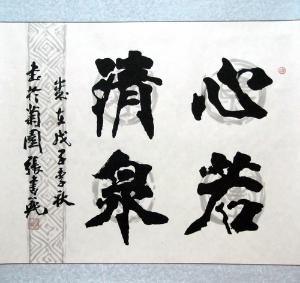 心若
清泉
岁在戊子季秋
书于菊园张书范